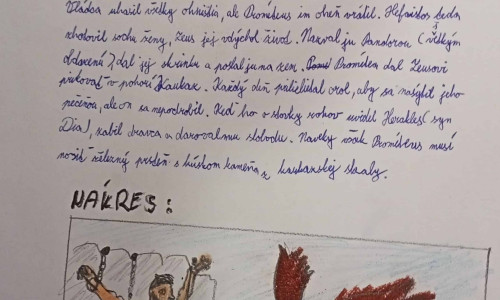 Vládca uhasil všetky ohniská, ale Prométeus im oheň vrátil. Hefaistos teda
zhotovil sochu ženy, Zeus jej vdýchol život. Nazval ju Pandorou (všetkým
obdarená) dal jej skrinku a poslal ju na zem. Prometea dal Zeus
prikovať v pohorí Kaukaz. Každý deň prilietal orol, aby sa nasýtil jeho
pečeňou, ale on sa nepodrobil. Keď ho v stovky rokov uvidel Herakles (syn
Dia), zabil dravca a daroval mu slobodu. Naveky však Prométeus musí
nosiť železný prsteň s kúskom kameňa z kaukazskej skaly.
NÁKRES: